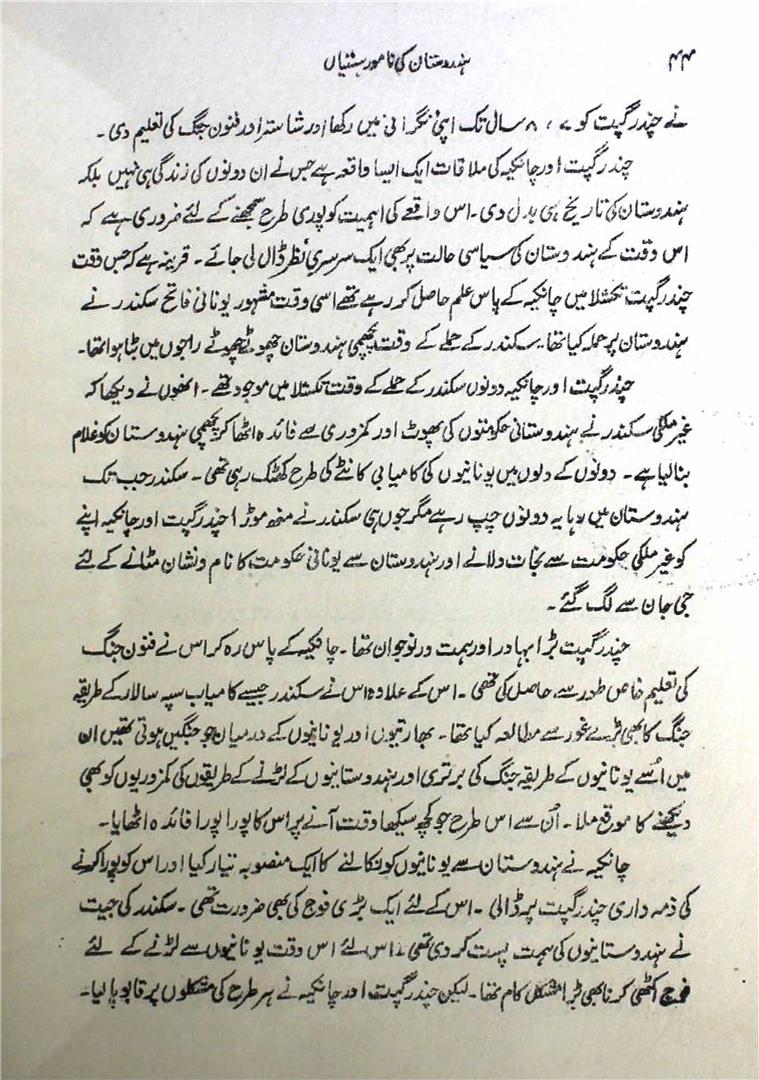 ۴۴ ہندوستان کی نامور ہستیاں
نے چندرگپت کو ۷، ۸ سال تک اپنی نگرانی میں رکھا اور شاستر اور فنون جنگ کی تعلیم دی۔
چندرگپت اور چانکیہ کی ملاقات ایک ایسا واقعہ ہے جس نے ان دونوں کی زندگی ہی نہیں بلکہ
ہندوستان کی تاریخ ہی بدل دی۔ اس واقعے کی اہمیت کو پوری طرح سمجھنے کے لئے ضروری ہے کہ
اس وقت کے ہندوستان کی سیاسی حالت پر بھی ایک سرسری نظر ڈال لی جائے۔ قرینہ ہے کہ جس وقت
چندرگپت تکشلا میں چانکیہ کے پاس علم حاصل کر رہے تھے اسی وقت مشہور یونانی فاتح سکندر نے
ہندوستان پر حملہ کیا تھا۔ سکندر کے حملے کے وقت پچھمی ہندوستان چھوٹے چھوٹے راجوں میں بٹا ہوا تھا۔
چندرگپت اور چانکیہ دونوں سکندر کے حملے کے وقت تکشلا میں موجود تھے۔ انھوں نے دیکھا کہ
غیر ملکی سکندر نے ہندوستانی حکومتوں کی پھوٹ اور کمزوری سے فائدہ اٹھا کر پچھمی ہندوستان کو غلام
بنا لیا ہے۔ دونوں کے دلوں میں یونانیوں کی کامیابی کانٹے کی طرح کھٹک رہی تھی۔ سکندر جب تک
ہندوستان میں رہا یہ دونوں چپ رہے مگر جوں ہی سکندر نے منھ موڑا چندرگپت اور چانکیہ اپنے
کو غیر ملکی حکومت سے نجات دلانے اور ہندوستان سے یونانی حکومت کا نام و نشان مٹانے کے لئے
جی جان سے لگ گئے۔
چندرگپت بڑا بہادر اور ہمت ور نوجوان تھا۔ چانکیہ کے پاس رہ کر اس نے فنون جنگ
کی تعلیم خاص طور سے حاصل کی تھی۔ اس کے علاوہ اس نے سکندر جیسے کامیاب سپہ سالار کے طریقہ
جنگ کا بھی بڑے غور سے مطالعہ کیا تھا۔ بھارتیوں اور یونانیوں کے درمیان جو جنگیں ہوتی تھیں ان
میں اُسے یونانیوں کے طریقہ جنگ کی برتری اور ہندوستانیوں کے لڑنے کے طریقوں کی کمزوریوں کو بھی
دیکھنے کا موقع ملا۔ اُن سے اس طرح جو کچھ سیکھا وقت آنے پر اس کا پورا پورا فائدہ اٹھایا۔
چانکیہ نے ہندوستان سے یونانیوں کو نکالنے کا ایک منصوبہ تیار کیا اور اس کو پورا کرنے
کی ذمہ داری چندرگپت پر ڈالی۔ اس کے لئے ایک بڑی فوج کی بھی ضرورت تھی۔ سکندر کی جیت
نے ہندوستانیوں کی ہمت پست کر دی تھی، اس لئے اس وقت یونانیوں سے لڑنے کے لئے
فوج اکٹھی کرنا بھی بڑا مشکل کام تھا۔ لیکن چندرگپت اور چانکیہ نے ہر طرح کی مشکلوں پر قابو پا لیا۔